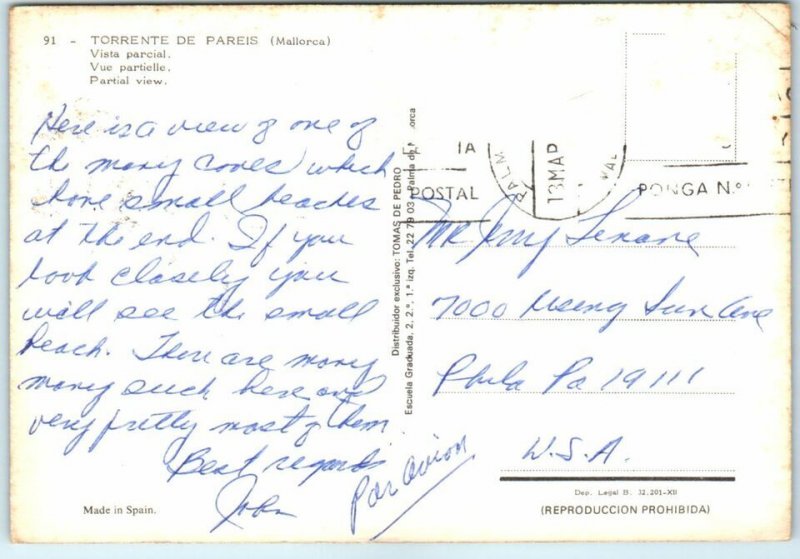 91 - TORRENTE DE PAREIS (Mallorca)
Vista parcial.
Vue partielle.
Partial view.
Here is a view of one of
the many coves which
have small beaches
at the end. If you
look closely you
will see the small
beach. There are many
many such here and
very pretty most of them.
Best regards
John
Made in Spain.
Par avion
Distribuidor exclusivo: TOMAS DE PEDRO
Escuela Graduada, 2, 2.º, 1.ª Izq. Tel. 22 79 03 - Palma de Mallorca
POSTAL
PALM
13 MAR
PONGA N.º
Mr Jerry
7000 Sun Ave
Phila Pa 19111
U.S.A.
Dep. Legal B. 32.201-XII
(REPRODUCCION PROHIBIDA)